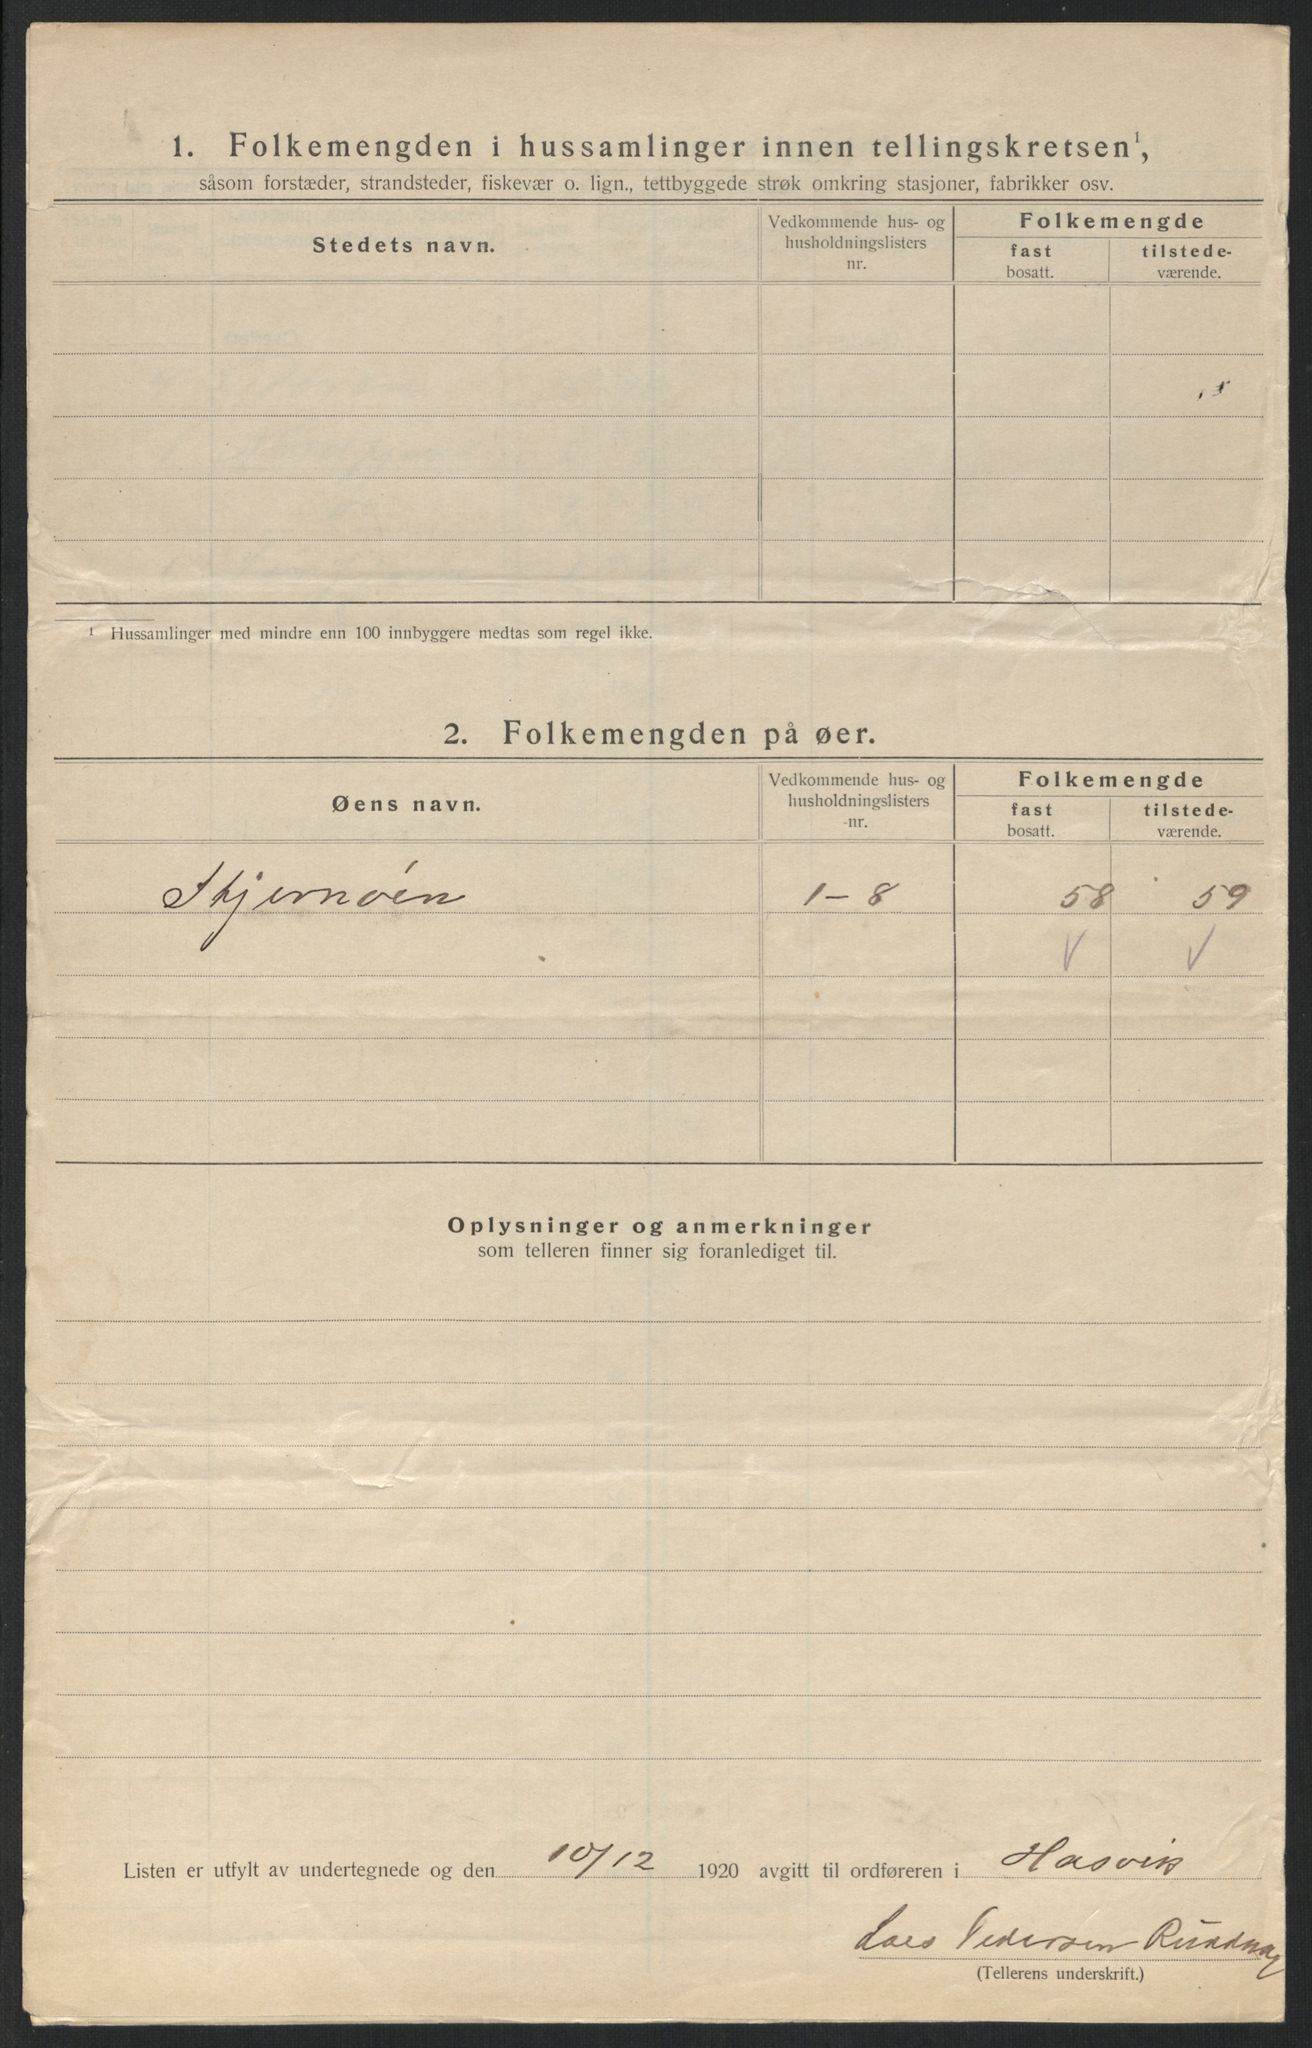 1. Folkemengden i hussamlinger innen tellingskretsen¹,
såsom forstæder, strandsteder, fiskevær o. lign., tettbyggede strøk omkring stasjoner, fabrikker osv.
Stedets navn.
Vedkommende hus- og
husholdningslisters
nr.
Folkemengde
fast
bosatt.
tilstede-
værende.
¹ Hussamlinger med mindre enn 100 innbyggere medtas som regel ikke.
2. Folkemengden på øer.
Øens navn.
Vedkommende hus- og
husholdningslisters
-nr.
Folkemengde
fast
bosatt.
tilstede-
værende.
Stjernöén 1-8 58 59
V V
Oplysninger og anmerkninger
som telleren finner sig foranlediget til.
Listen er utfylt av undertegnede og den 10/12 1920 avgitt til ordføreren i Hasvik
Lars Pedersen
(Tellerens underskrift.)